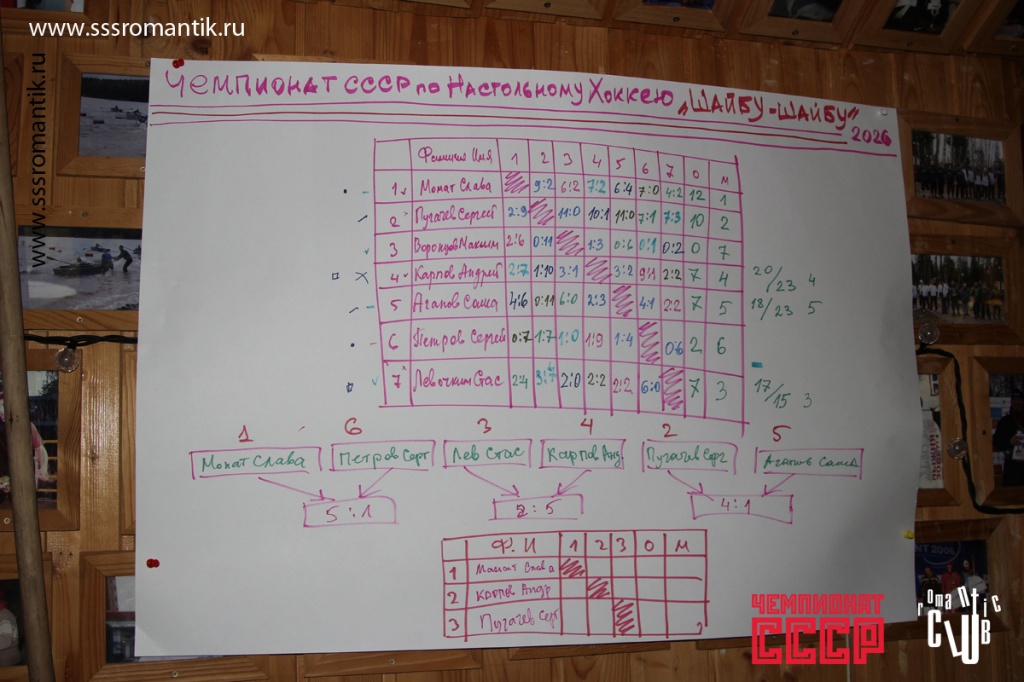 www.sssromantik.ru
www.sssromantik.ru
Чемпионат СССР по Настольному Хоккею „Шайбу-Шайбу"
2026
Фамилия Имя 1 2 3 4 5 6 7 О М
1 Монат Слава 9:2 6:2 7:2 6:4 7:0 4:2 12 1
2 Пугачев Сергей 2:9 11:0 10:1 11:0 7:1 7:3 10 2
3 Воронцов Максим 2:6 0:11 1:3 0:6 0:1 0:2 0 7
4 Карпов Андрей 2:7 1:10 3:1 3:2 9:1 2:2 7 4 20/23 4
5 Агапов Саша 4:6 0:11 6:0 2:3 4:1 2:2 7 5 18/23 5
6 Петров Сергей 0:7 1:7 1:0 1:9 1:4 0:6 2 6
7 Левочкин Стас 2:4 3:7 2:0 2:2 2:2 6:0 7 3 17/15 3
1 6 3 4 2 5
Монат Слава Петров Серг Лев Стас Карпов Анд. Пугачев Серг Агапов Саша
5:1 2:5 4:1
Ф.И 1 2 3 О М
1 Монат Слава
2 Карпов Андр
3 Пугачев Серг
ЧЕМПИОНАТ
СССР
romantic
CLUB